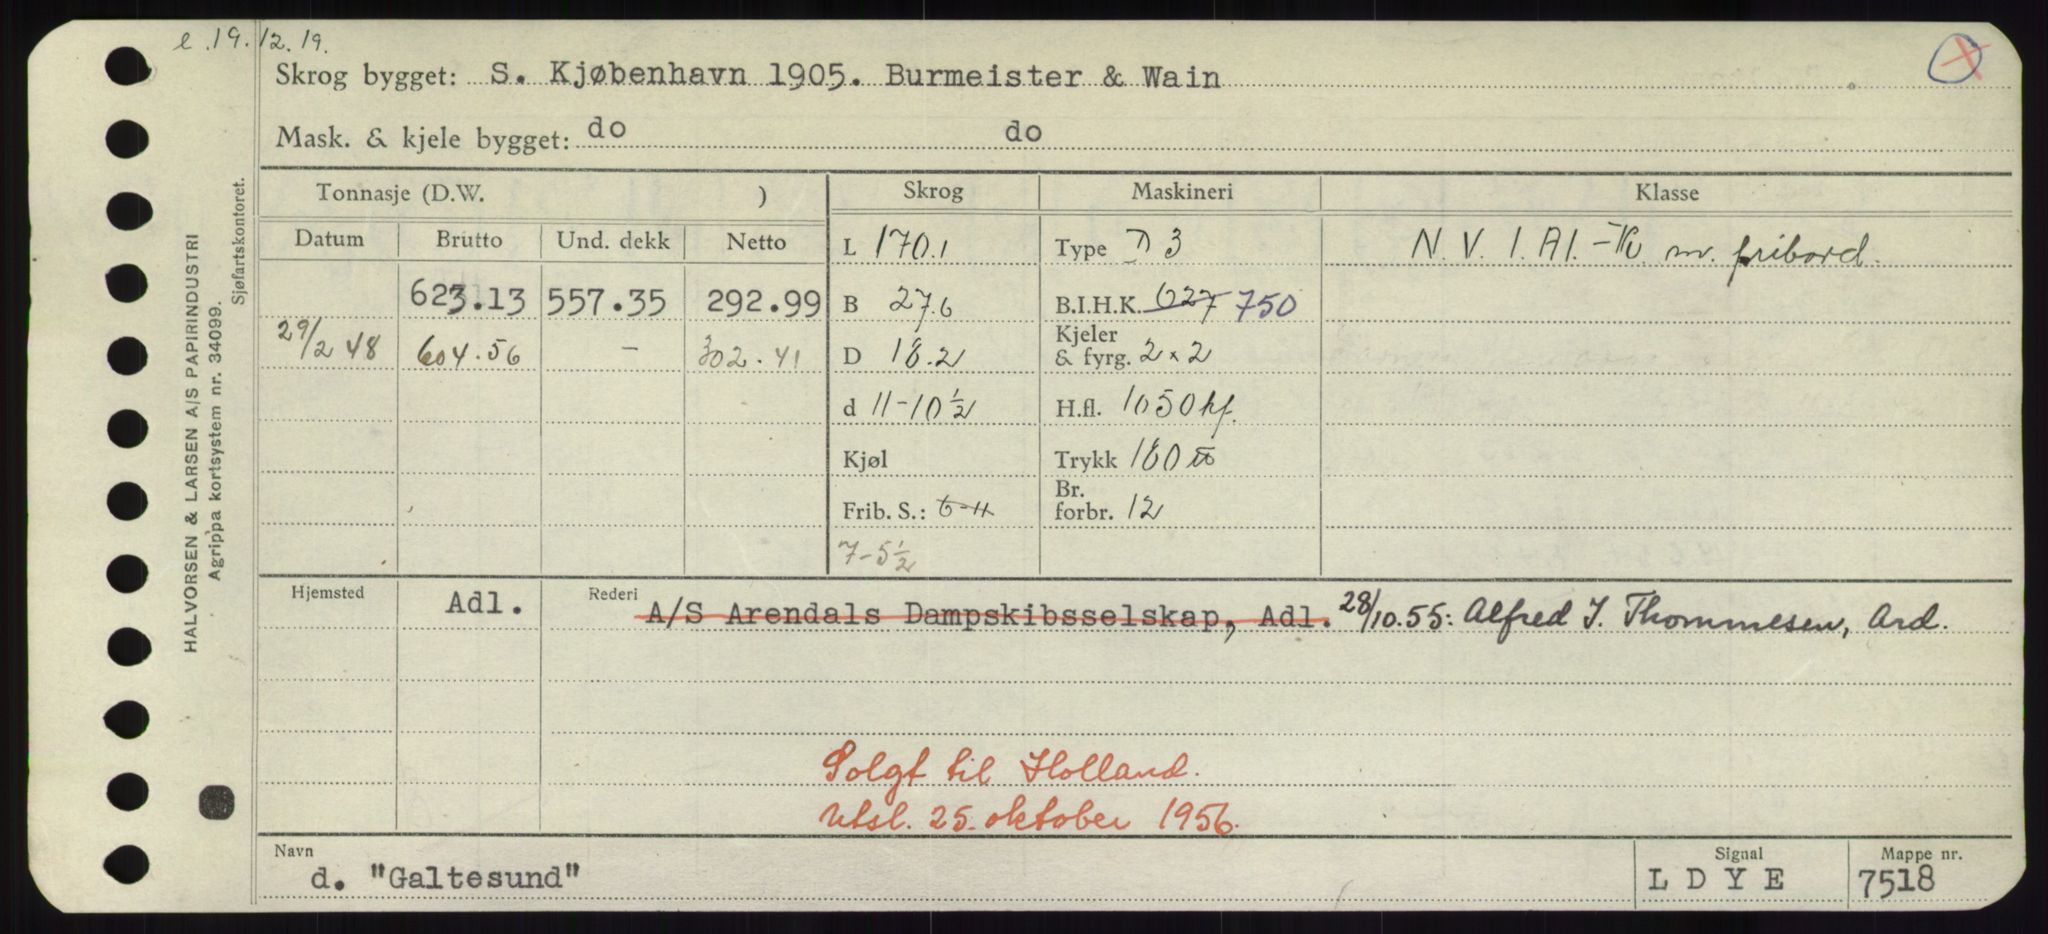 e. 19.12.19.
Skrog bygget: S. Kjøbenhavn 1905. Burmeister & Wain
Mask. & kjele bygget: do do
Tonnasje (D.W. ) Skrog Maskineri Klasse
Datum Brutto Und. dekk Netto L 170.1 Type D 3 N. V. 1. A1. - m. fribord.
623.13 557.35 292.99 B 27.6 B.I.H.K. 627 750
29/2 48 604.56 - 302.41 D 18.2 Kjeler & fyrg. 2 x 2
d 11-10½ H.fl. 1050 kf.
Kjøl Trykk 180 lb
Frib. S.: 6-11 Br. forbr. 12
7-5½
Hjemsted Adl. Rederi A/S Arendals Dampskibsselskap, Adl. 28/10.55: Alfred J. Thommesen, Ard.
Solgt til Holland.
Utsl. 25. oktober 1956.
Navn Signal Mappe nr.
d. "Galtesund" L D Y E 7518
HALVORSEN & LARSEN A/S PAPIRINDUSTRI
Agrippa kortsystem nr. 34099.
Sjøfartskontoret.